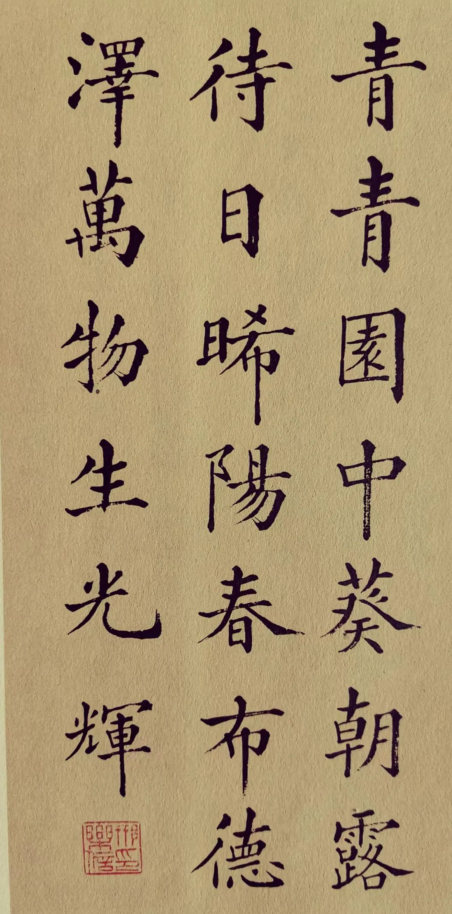 青青園中葵朝露
待日晞陽春布德
澤萬物生光輝